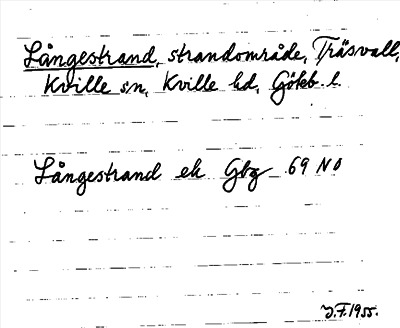 Långestrand, strandområde, Träsvall,
Kville sn, Kville hd, Göteb. l.
Långestrand ek Gbg 69 NO
J.F. 1955.